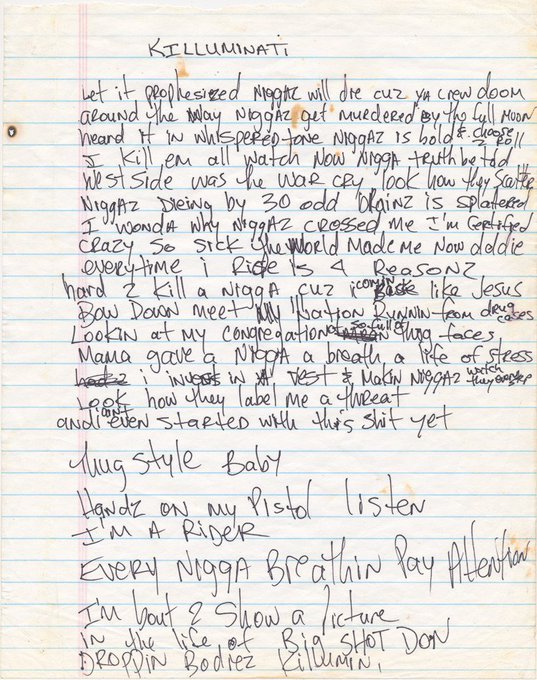 KILLUMINATI
Let it prophesized Niggaz will die cuz ya crew doom
around the way Niggaz get murdered By the full moon
heard it in whispered tone Niggaz is bold & choose 2 roll
I kill em all watch Now Nigga truth be told
West side was the war cry look how they Scatter
Niggaz Dieing by 30 odd brainz is splattered
I wonda why Niggaz crossed me I'm certified
crazy so sick the World Made Me Now do or die
everytime i Ride is 4 Reasonz
hard 2 kill a Nigga cuz i comin like Jesus
Bow Down meet My Nation Runnin from drug cases
Lookin at my congregation so full of thug faces
Mama gave a Nigga a breath a life of stress
i invest in A vest & Makin Niggaz watch they step
Look how they label me a threat
and i aint even started with this shit yet
thug style Baby
Handz on my Pistol listen
I'm A Rider
Every Nigga Breathin Pay Attention
I'm bout 2 Show a Picture
in the life of Big SHOT DON
DROPPIN Bodiez Killumin,